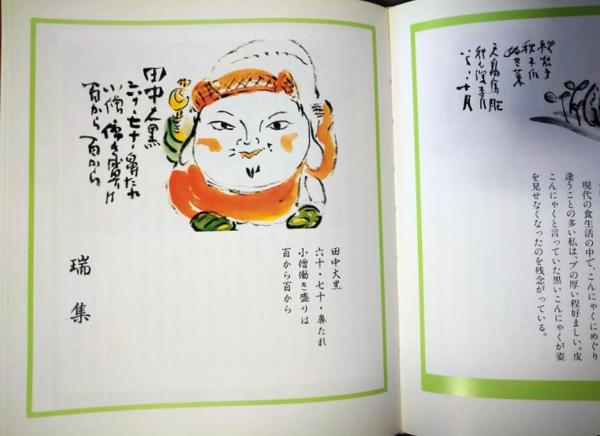 秋茄子
現代の食生活の中で、こんにゃくにめぐり
逢うことの多い私は、プの厚い程好ましい。皮
こんにゃくと言っていた黒いこんにゃくが姿
を見せなくなったのを残念がっている。
田中大黒
六十・七十・鼻たれ
小僧働き盛りは
百から百から
田中大黒
六十・七十・鼻たれ
小僧働き盛りは
百から百から
瑞集